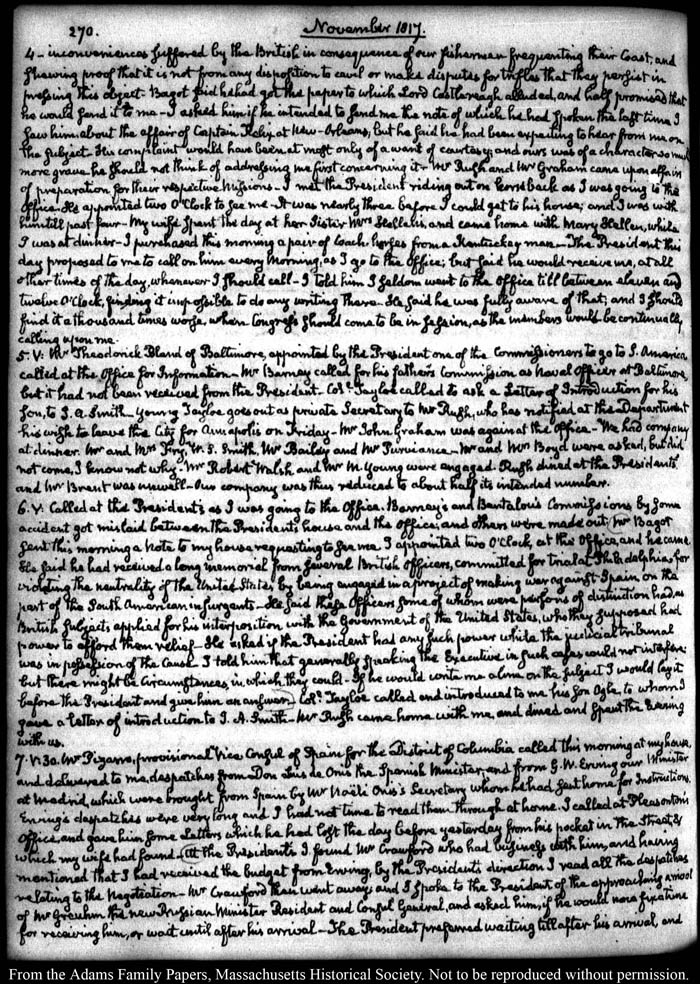 270. November 1817.
4 - inconveniences suffered by the British in consequence of our fishermen frequenting their Coast, and
shewing proof that it is not from any disposition to cavil or make disputes for trifles that they persist in
pressing this object. Bagot said he had got the paper to which Lord Castlereagh alluded, and half promised that
he would send it to me - I asked him if he intended to send me the note of which he had spoken the last time I
saw him, about the affair of Captain at New-Orleans, but he said he had been expecting to hear from me on
the subject - His complaint would have been at most only of a want of courtesy, and ours was of a character so much
more grave he should not think of addressing me first concerning it - Mr Rush and Mr Graham came upon affairs
of preparation for their respective Missions - I met the President riding out on horseback as I was going to the
Office. He appointed two O'Clock to see me - It was nearly three before I could get to his house; and I was with
him till past four - My wife spent the day at her Sister Mrs Hellen's, and came home with Mary Hellen, while
I was at dinner - I purchased this morning a pair of Coach horses from a Kentuckey man - The President this
day proposed to me to call on him every morning, as I go to the Office; but said he would receive me, at all
other times of the day, whenever I should call - I told him I seldom went to the Office till between eleven and
twelve O'Clock, finding it impossible to do any writing there - He said he was fully aware of that; and I should
find it a thousand times worse, when Congress should come to be in Session, as the members would be continually
calling upon me.
5. V: Mr Theodorick Bland of Baltimore, appointed by the President one of the Commissioners to go to S. America
called at the Office for Information - Mr Barney called for his father's Commission as Naval Officer at Baltimore
but it had not been received from the President - Coll. Tayloe called to ask a Letter of Introduction for his
Son, to J. A. Smith - Young Tayloe goes out as private Secretary to Mr Rush, who has notified at the Department
his wish to leave this City for Annapolis on Friday - Mr John Graham was again at the Office - We had company
at dinner. Mr and Mrs W. S. Smith, Mr Bailey and Mr Purviance - Mr and Mrs Boyd were asked, but did
not come, I know not why - Mr Robert Walsh, and Mr M. Young were engaged - Rush dined at the President's
and Mr Brent was unwell - Our company was thus reduced to about half its intended number.
6. V: Called at the President's as I was going to the Office. Barney's and Bentalou's Commissions by some
accident got mislaid between the President's house and the Office; and others were made out. Mr Bagot
sent this morning a Note to my house requesting to see me. I appointed two O'Clock, at the Office, and he came.
He said he had received a long memorial from several British Officers, committed for trial at Philadelphia for
violating the neutrality of the United States by being engaged in a project of making war against Spain on the
part of the South American insurgents - He said these Officers some of whom were persons of distinction had as
British subjects applied for his interposition with the Government of the United States, who they supposed had
power to afford them relief - He asked if the President had any such power while the judicial tribunal
was in possession of the Cause. I told him that generally speaking the Executive in such cases could not interfere
but there might be Circumstances, in which they could - If he would write me a line on the subject I would lay it
before the President and give him an answer. Coll. Tayloe called and introduced to me his son Ogle, to whom I
gave a letter of introduction to J. A. Smith - Mr Rush came home with me, and dined and spent the Evening
with us.
7. V:30. Mr Pizarro, provisional Vice Consul of Spain for the District of Columbia called this morning at my house
and delivered to me, despatches from Don Luis de Onis the Spanish Minister, and from G. W. Erving our Minister
at Madrid, which were brought from Spain by Mr Onis's Secretary whom he had sent home for Instructions.
Erving's despatches were very long and I had not time to read them through at home. I called at Pleasonton's
Office, and gave him some Letters which he had lost the day before yesterday from his pocket in the Street &
which my wife had found - At the President's I found Mr Crawford who had business with him, and having
mentioned that I had received the budget from Erving, by the President's direction I read all the despatches
relating to the Negotiation - Mr Crawford then went away; and I spoke to the President of the approaching arrival
of Mr Greuhm the new Prussian Minister Resident and Consul General, and asked him, if he would now fix a time
for receiving him, or wait until after his arrival - The President preferred waiting till after his arrival, and
From the Adams Family Papers, Massachusetts Historical Society. Not to be reproduced without permission.